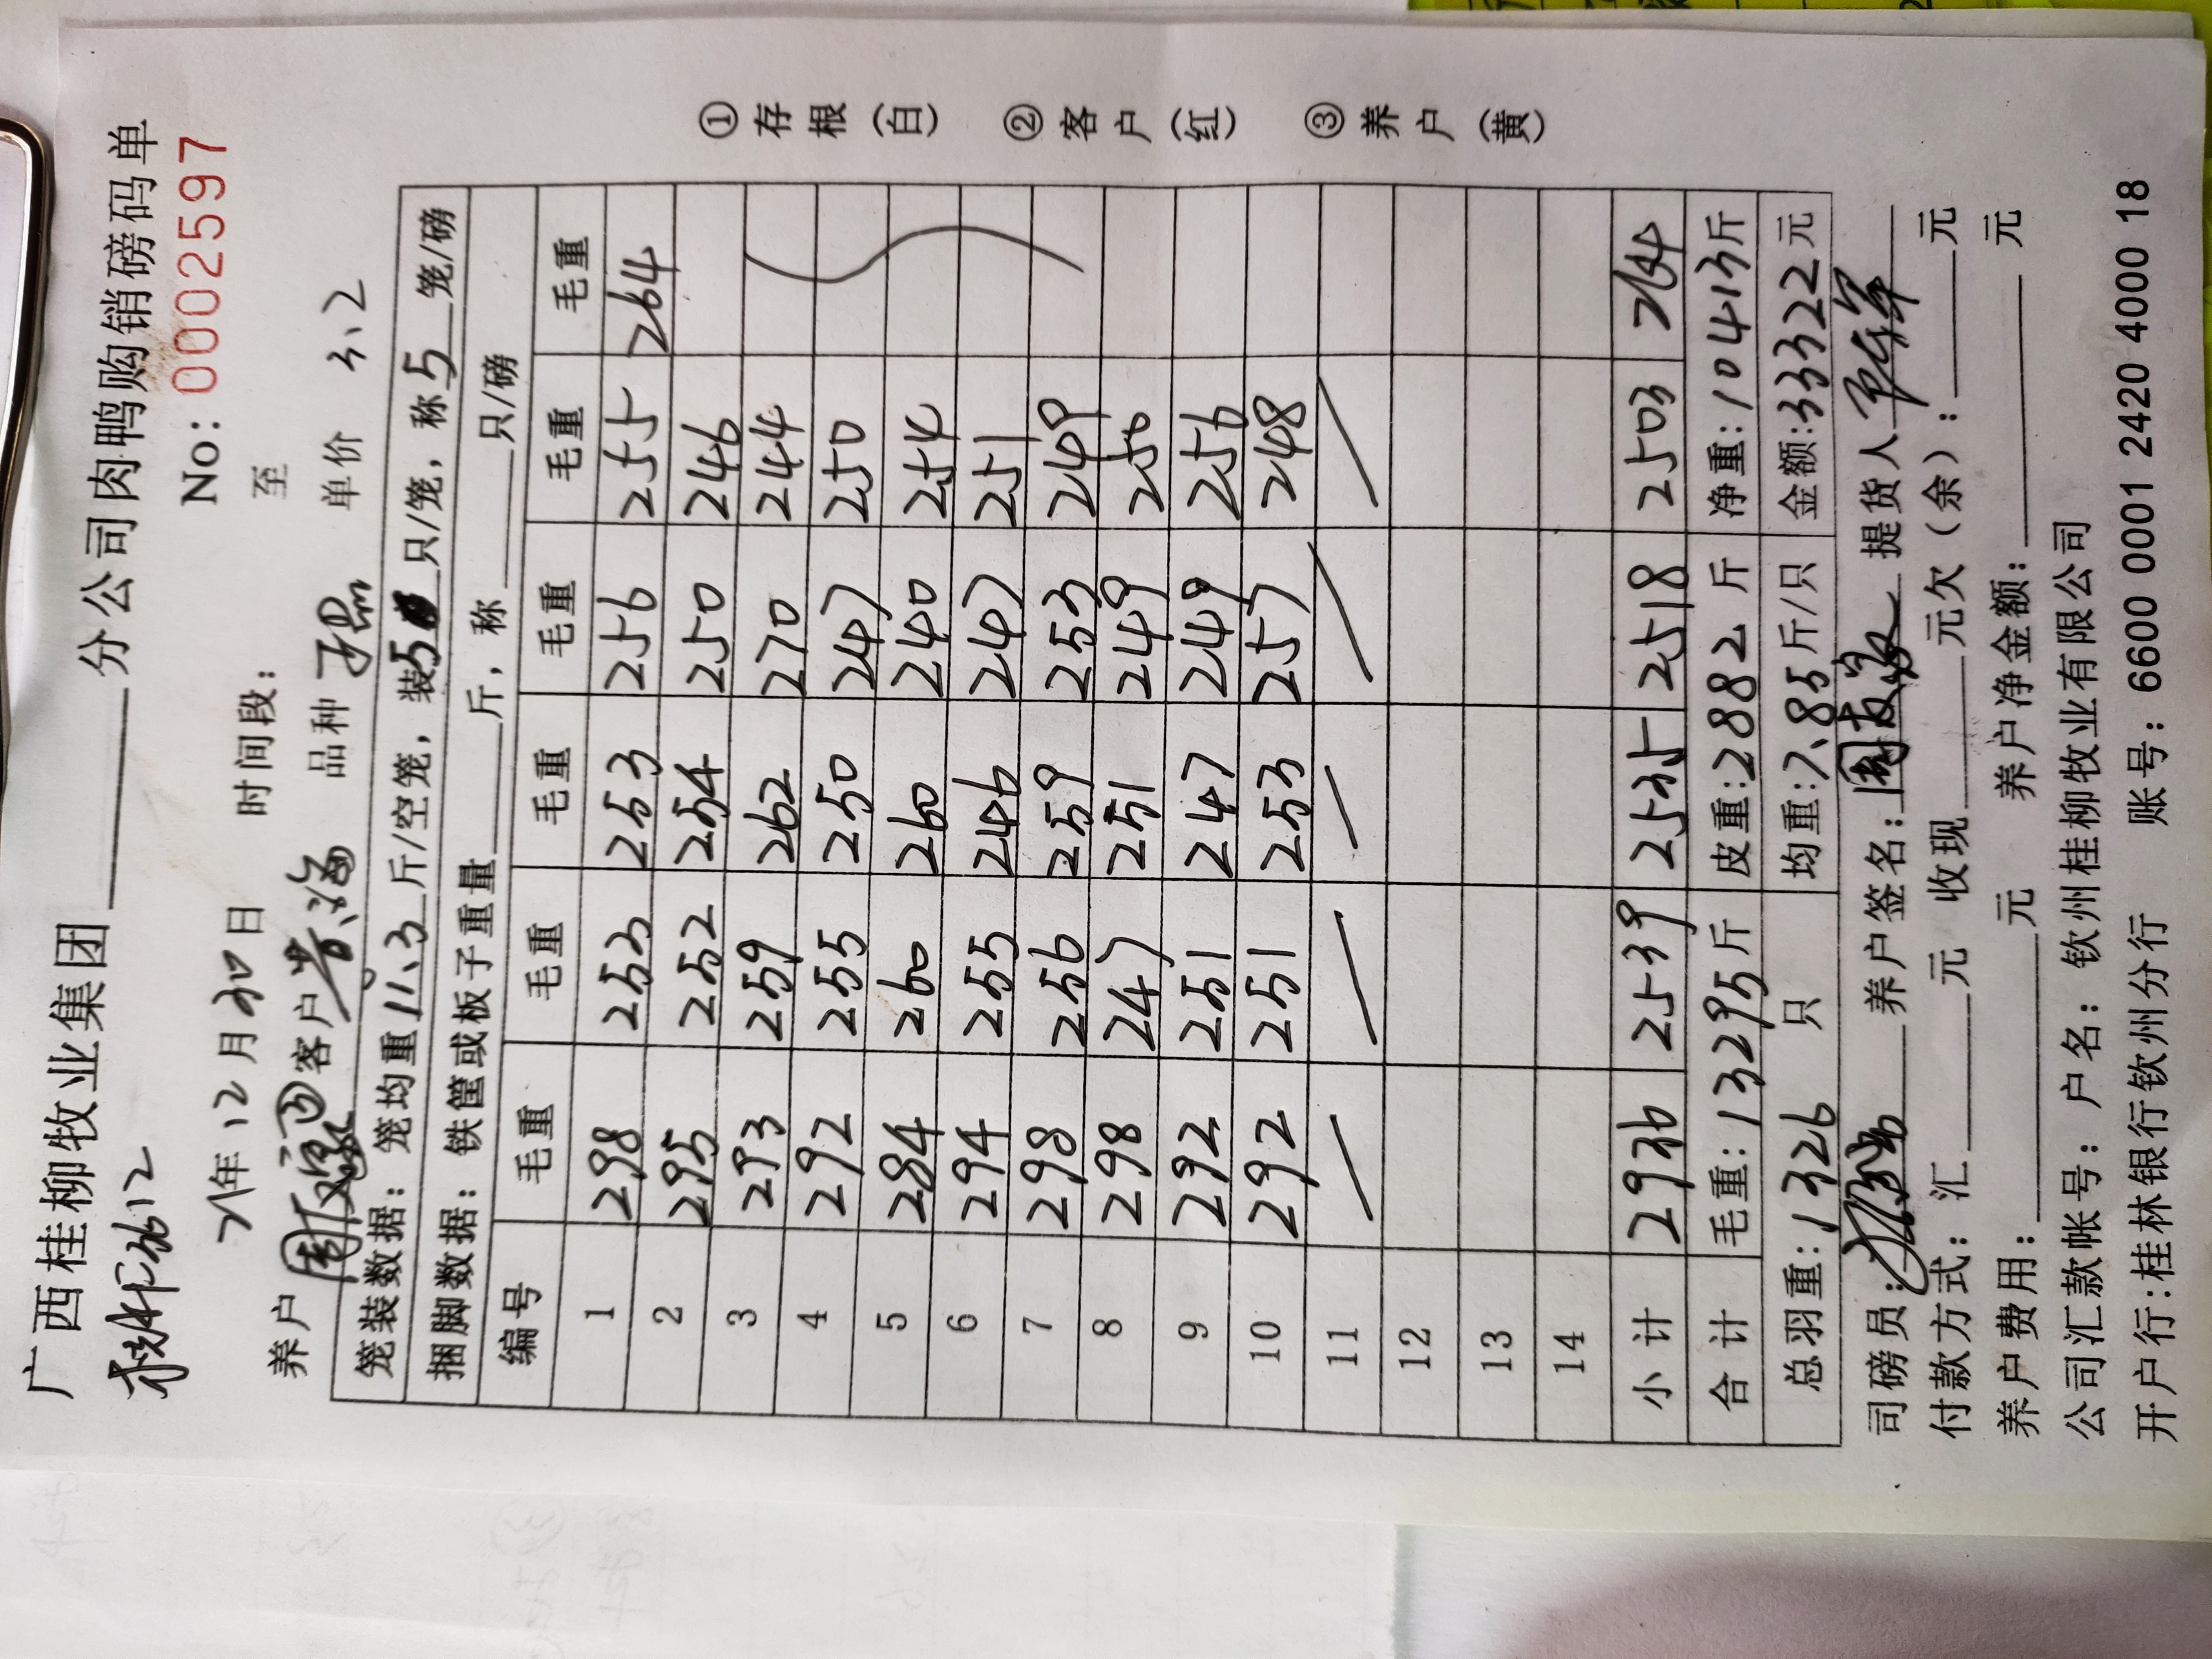 广西桂柳牧业集团______分公司肉鸭购销磅码单
No: 0002597
21年12月30日 时间段: 至
养户 客户 品种 单价 3.2
笼装数据: 笼均重11.3斤/空笼, 装5只/笼, 称5笼/磅
捆脚数据: 铁筐或板子重量____斤, 称____只/磅
编号 毛重 毛重 毛重 毛重 毛重 毛重
1 298 253 253 256 255 264
2 295 252 254 250 246
3 293 259 262 270 244
4 292 255 250 247 250
5 284 260 260 240 254
6 294 255 246 247 251
7 298 256 259 253 249
8 298 247 251 249 250
9 292 251 247 249 256
10 292 251 253 257 248
11
12
13
14
小计 2936 2539 2535 2518 2503 264
合计 毛重: 13295斤 皮重: 2882斤 净重: 10413斤
总羽重: 1326 只 均重: 7.85斤/只 金额: 33322元
司磅员: 养户签名: 提货人
付款方式: 汇____元 收现____元欠(余): ____元
养户费用: ____元 养户净金额: ____元
公司汇款帐号: 户名: 钦州桂柳牧业有限公司
开户行: 桂林银行钦州分行 账号: 6600 0001 2420 4000 18
①存根(白) ②客户(红) ③养户(黄)